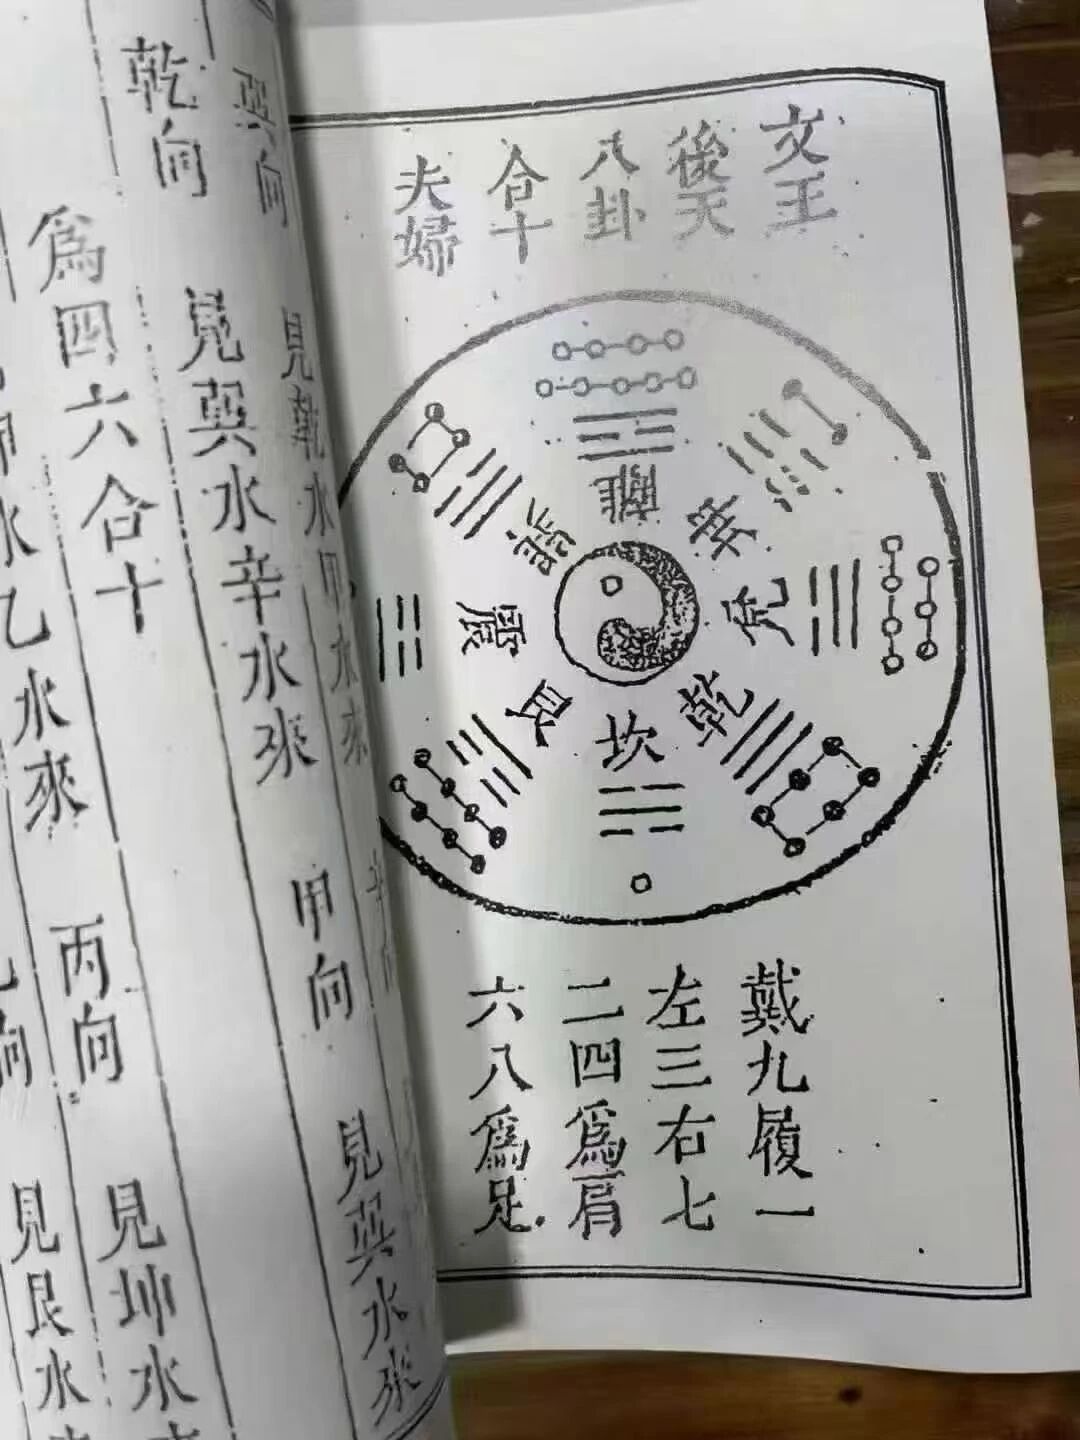 文王
後天
八卦
合十
夫婦
離
坤
兌
乾
坎
艮
震
巽
戴九履一
左三右七
二四為肩
六八為足
巽向 見乾水甲水來
乾向 見巽水辛水來 甲向 見巽水來
為四六合十
水乙水來 丙向 見坤水
向 見艮水